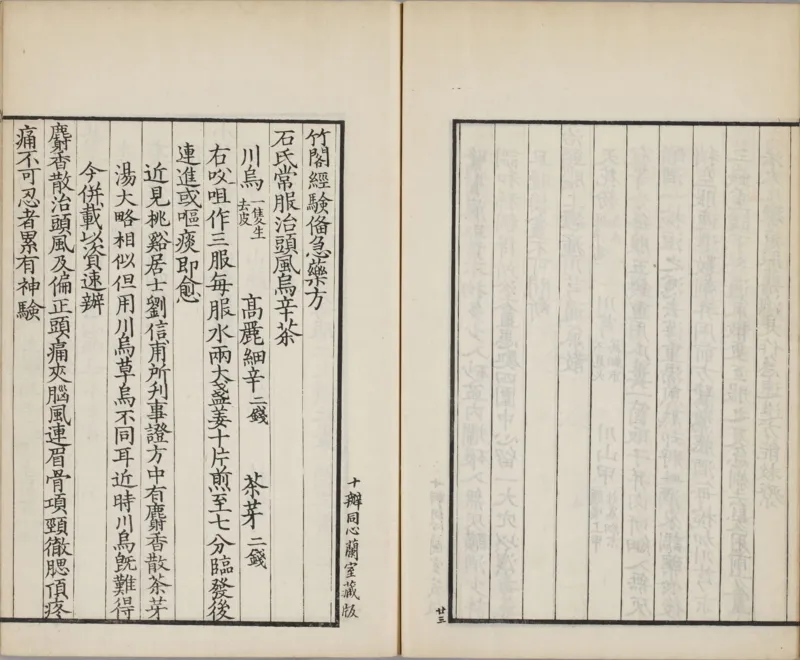 竹閣經驗俻急藥方
石氏常服治頭風烏辛茶
川烏一隻生去皮 高麗細辛二錢 茶芽二錢
右㕮咀作三服每服水兩大盞姜十片煎至七分臨發後
連進或嘔痰即愈
近見挑谿居士劉信甫所刋事證方中有麝香散茶芽
湯大略相似但用川烏草烏不同耳近時川烏旣難得
今併載以資速辦
麝香散治頭風及偏正頭痛夾腦風連眉骨項頸徹腮頂疼
痛不可忍者累有神驗
十瓣同心蘭室藏版
廿三